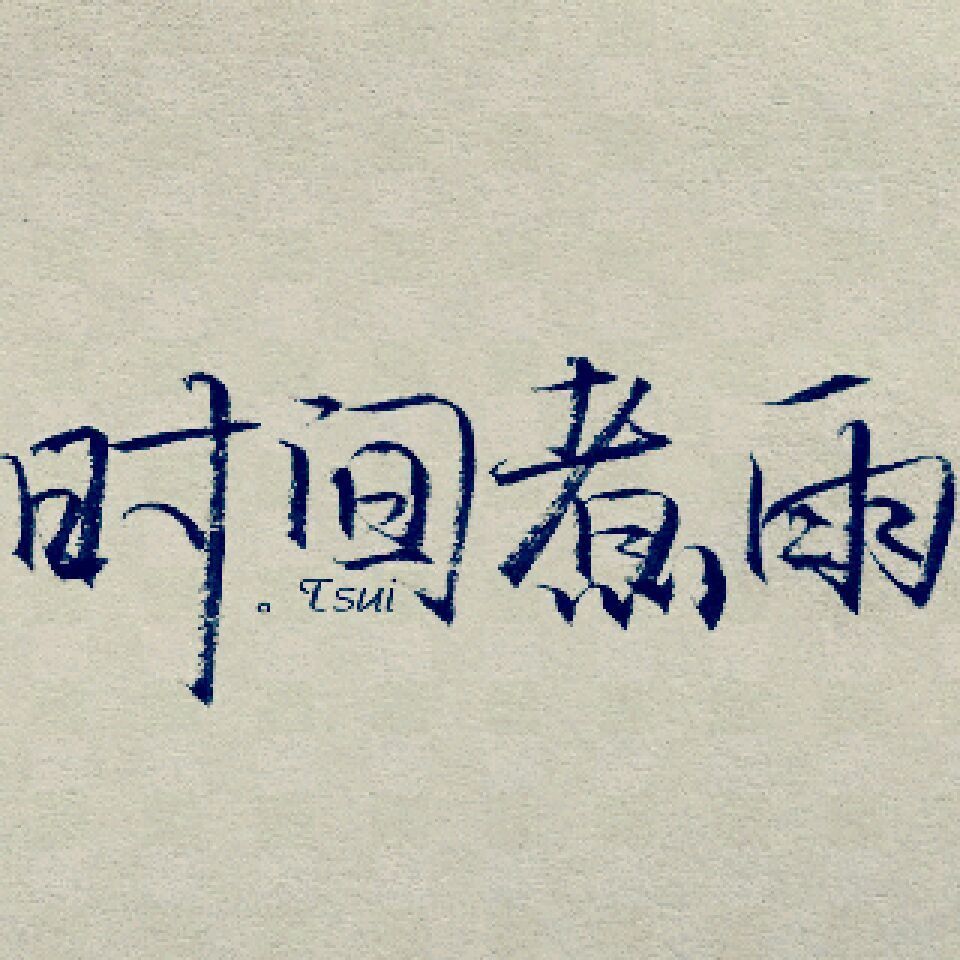 时间煮雨
。Tsui